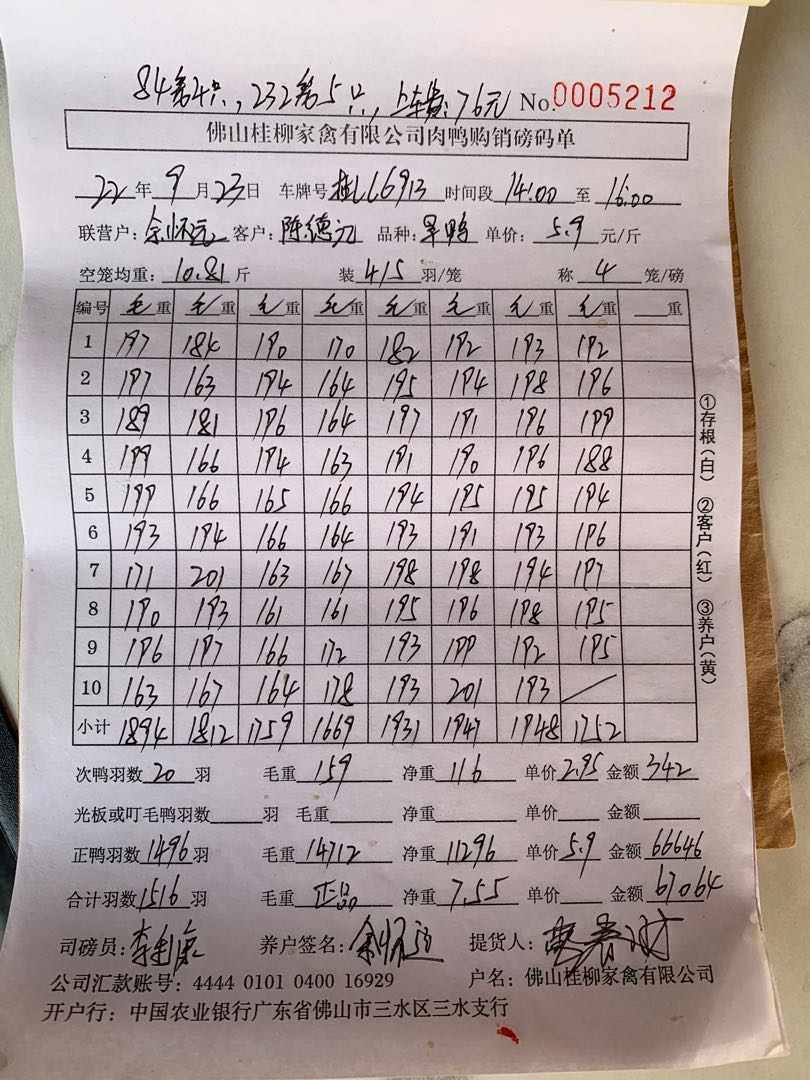 84笼4只,232笼5只,上车费:76元 No.0005212
佛山桂柳家禽有限公司肉鸭购销磅码单
22年9月23日 车牌号桂LL6913 时间段14:00至16:00
联营户:余怀远 客户:陈德沅 品种:旱鸭 单价:5.9元/斤
空笼均重:10.81斤 装4/5羽/笼 称4笼/磅
编号 毛重 毛重 毛重 毛重 毛重 毛重 毛重 毛重 重
1 197 184 190 170 182 192 193 192
2 197 163 194 164 195 194 198 196
3 189 181 196 164 197 191 196 199
4 199 166 194 163 191 190 196 188
5 199 166 165 166 194 195 195 194
6 193 194 166 164 193 191 193 196
7 171 201 163 167 198 198 194 197
8 190 193 161 161 195 196 198 195
9 196 197 166 172 193 199 192 195
10 163 167 164 178 193 201 193 /
小计 1894 1812 1759 1669 1931 1947 1948 1752
次鸭羽数20羽 毛重159 净重116 单价2.95 金额342
光板或叮毛鸭羽数 羽 毛重 净重 单价 金额
正鸭羽数1496羽 毛重14712 净重11296 单价5.9 金额66646
合计羽数1516羽 毛重正品 净重7.55 单价 金额67064
司磅员: 养户签名:余怀远 提货人:
公司汇款账号:4444 0101 0400 16929 户名:佛山桂柳家禽有限公司
开户行:中国农业银行广东省佛山市三水区三水支行
①存根(白) ②客户(红) ③养户(黄)